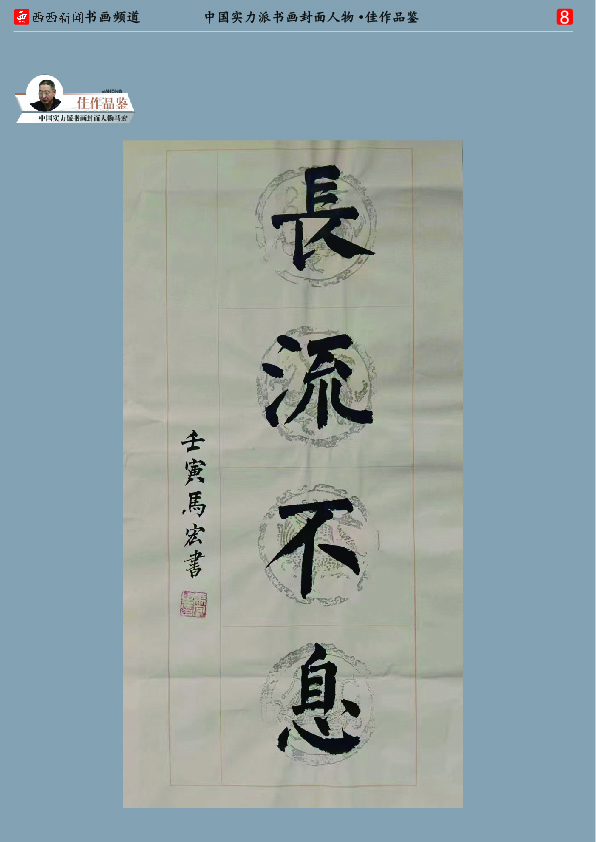 西西新闻书画频道
中国实力派书画封面人物·佳作品鉴
8
佳作品鉴
中国实力派书画封面人物马宏
長流不息
壬寅馬宏書